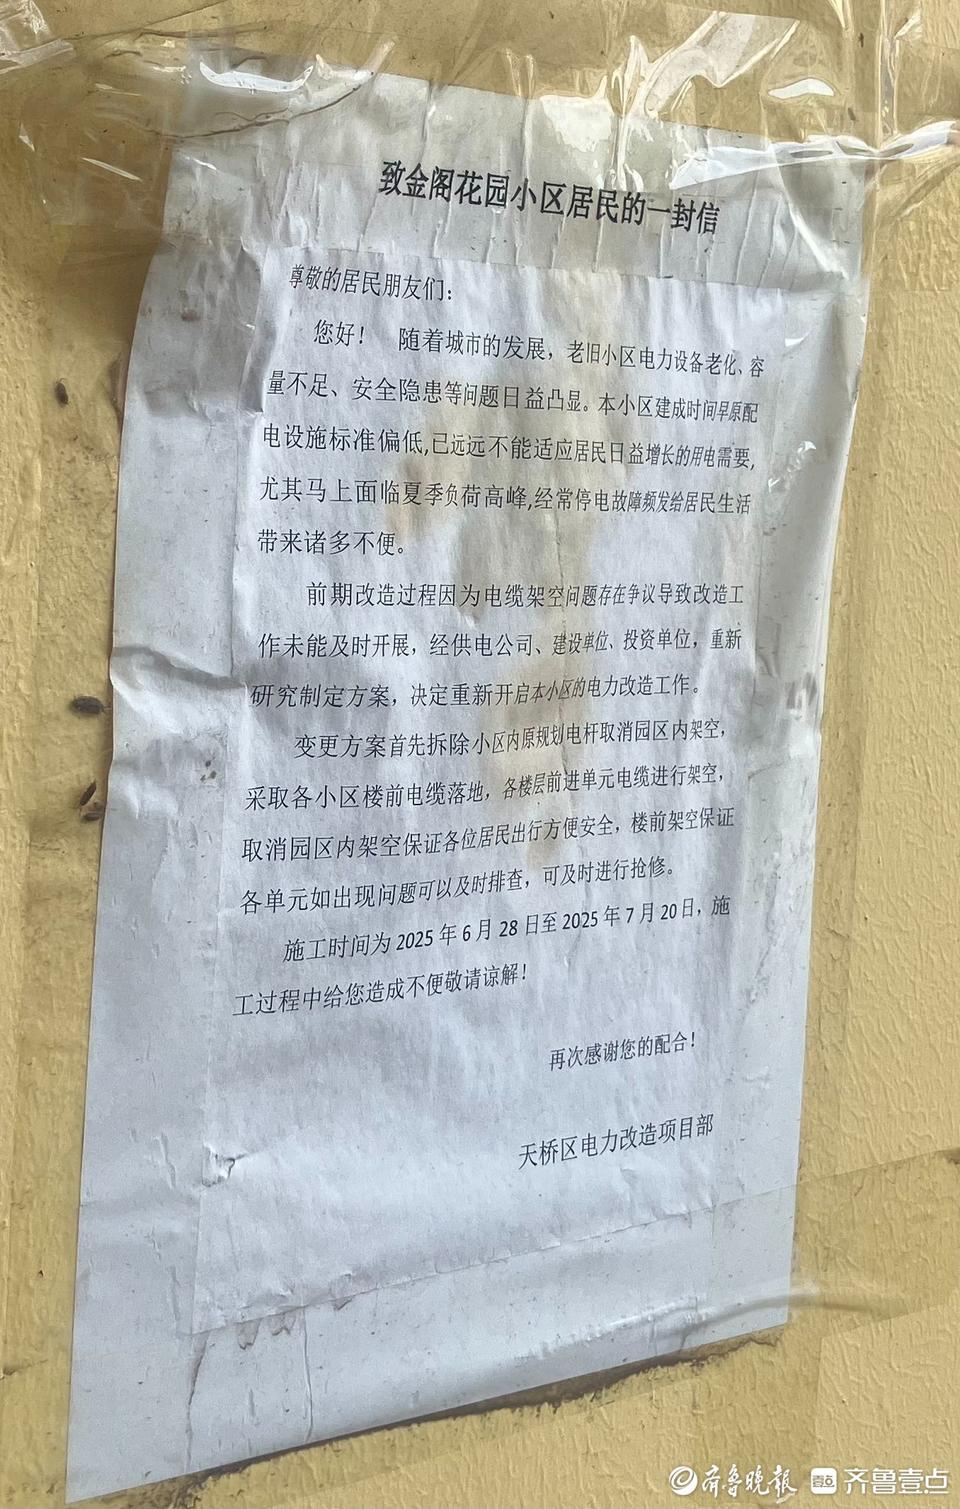 致金阁花园小区居民的一封信
尊敬的居民朋友们：
您好！ 随着城市的发展，老旧小区电力设备老化、容
量不足、安全隐患等问题日益凸显。本小区建成时间早原配
电设施标准偏低,已远远不能适应居民日益增长的用电需要,
尤其马上面临夏季负荷高峰,经常停电故障频发给居民生活
带来诸多不便。
前期改造过程因为电缆架空问题存在争议导致改造工
作未能及时开展，经供电公司、建设单位、投资单位，重新
研究制定方案，决定重新开启本小区的电力改造工作。
变更方案首先拆除小区内原规划电杆取消园区内架空，
采取各小区楼前电缆落地，各楼层前进单元电缆进行架空，
取消园区内架空保证各位居民出行方便安全，楼前架空保证
各单元如出现问题可以及时排查，可及时进行抢修。
施工时间为 2025 年 6 月 28 日至 2025 年 7 月 20 日，施
工过程中给您造成不便敬请谅解！
再次感谢您的配合！
天桥区电力改造项目部
齐鲁晚报 壹点 齐鲁壹点